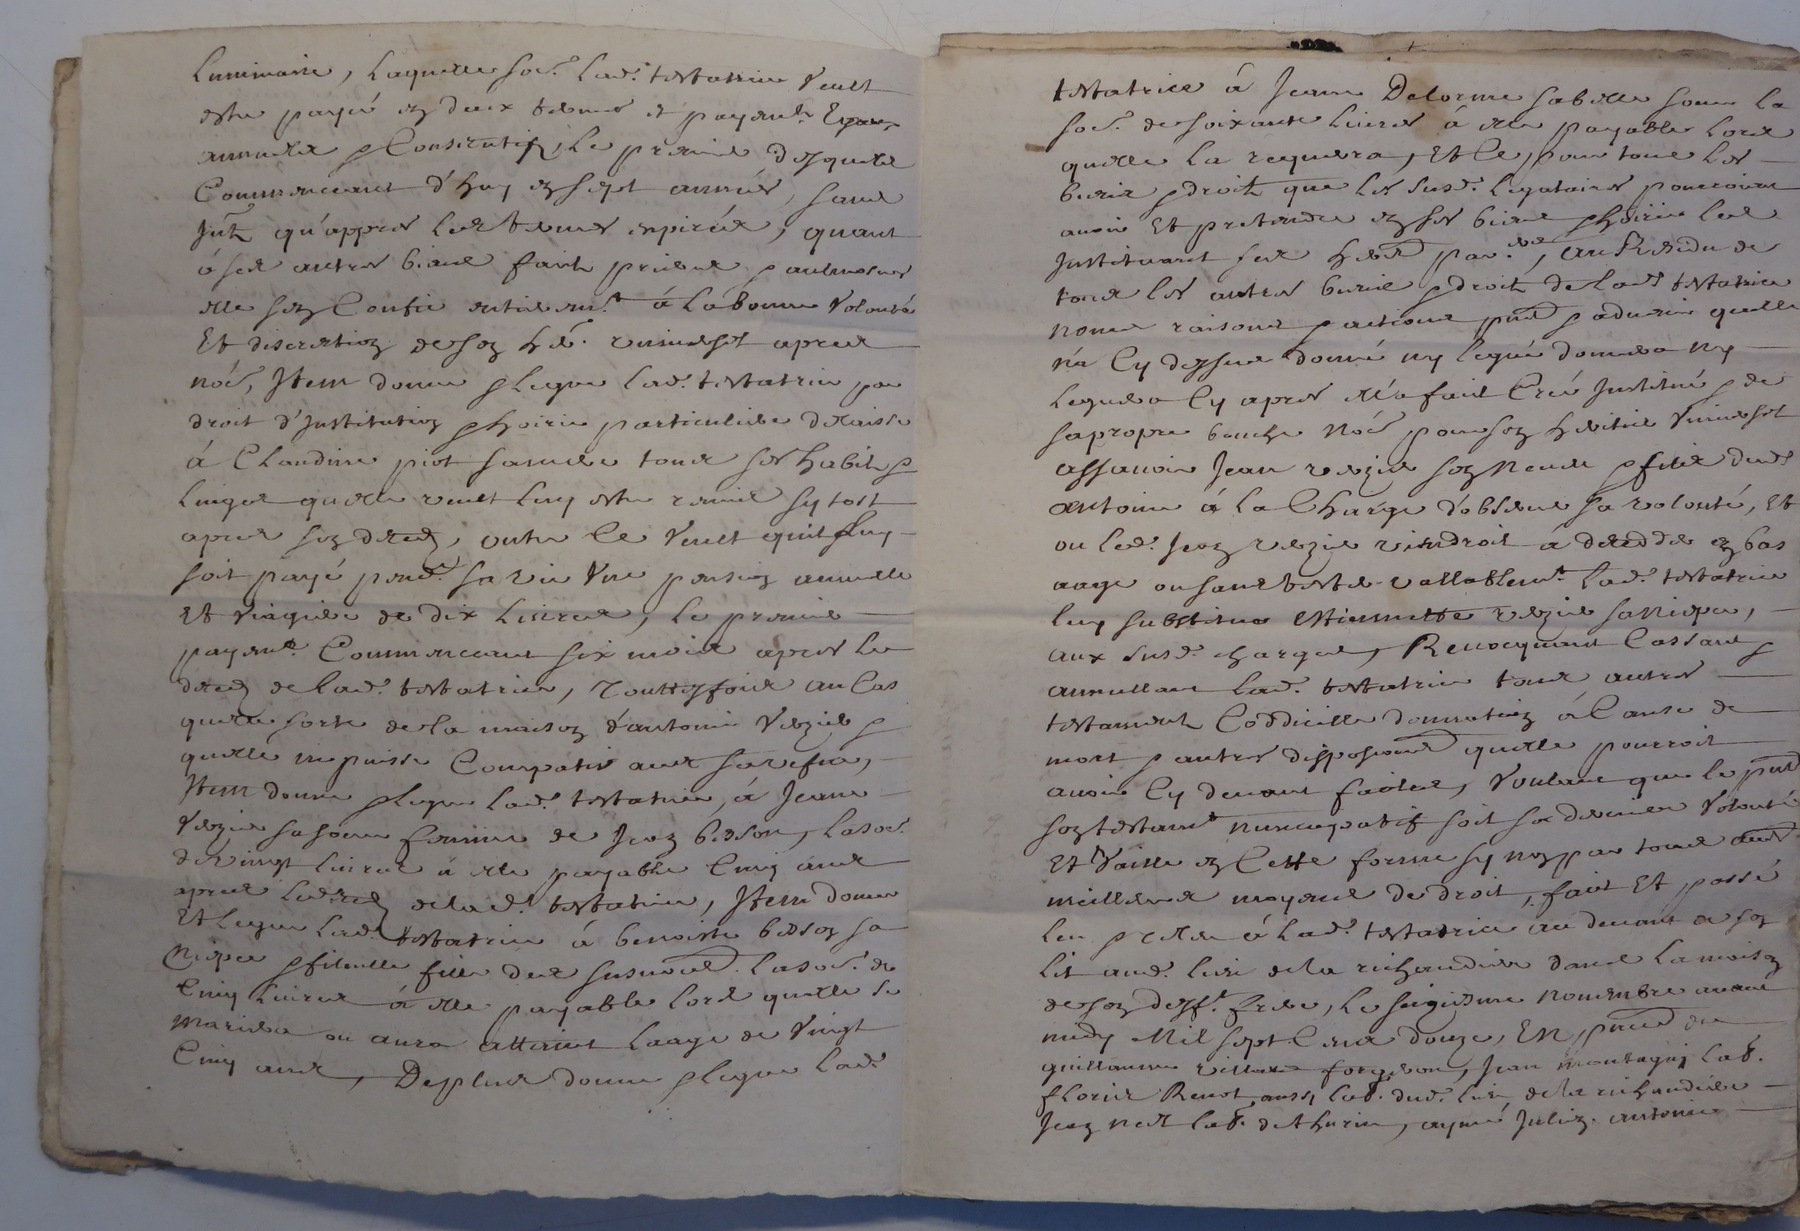 luminaire, laquelle so.e lad. testatrice veult
estre payé en deux termes et payem.ts
annuels & Consecutifs, Le premier desquels
Commenceant d'huy en sept années, sans
Jnth qu'appres les termes expirés, quant
a ses autres biens faits prieres & aulmosnes
elle sen Confie entierem.t a la bonne volonté
Et discretion de son he. universel apres
no.é, Jtem donne & legue lad. testatrice par
droit d'Institution & hoirie particuliere delaisse
á Claudine piot sa mere tous ses habits &
linges quelle veult luy estre remis sy tost
apres son deced, outre Ce veult quil luy
soit payé pend. sa vie une pension annuelle
Et viagere de dix Livres, Le premier
payem.t Commenceant six mois apres le
deced de lad. testatrice, touttesfois au Cas
quelle sorte de la maison d'antoine Vezier &
quelle ne puisse Compatir avec
Jtem donne & legue lad. testatrice, á Jeanne
Vezier sa soeur femme de Jean besson, la so.e
de vingt livres á elle payable Cinq ans
apres le deced de lad. testatrice, Jtem donne
Et legue lad. testatrice á benoiste besson sa
Niepce & filleulle fille des susnomé la so.e de
Cinq livres á elle payable lors quelle se
mariera ou aura atteint laage de vingt
Cinq ans, De plus donne & legue lad.
testatrice á Jeanne Delorme sa belle soeur la
so.e de soixante livres á elle payable lors
quelle la requera, Et Ce, pour tous les
biens & droits que les susd. legataires pourroient
avoir Et pretendre en ses biens & hoirie les
Instituant ses her. par.es, Au Residu de
tous les autres biens & droits de lad. testatrice
noms raisons & actions pnts & advenir quelle
n'a Cy dessus donné ny legué donnera ny
leguera Cy apres elle a fait Creé Jnstitué & de
sa propre bouche no.é pour son heritier universel
assavoir Jean vezier son neveu & filleul dud.
antoine á la Charge d'observer sa volonté, Et
ou led. Jean vezier viendroit á decedder en bas
aage ou sans tester vallablem.t lad. testatrice
luy substitue Estiennette vezier sa Niepce,
aux susd. charges, Revocquant Cassant &
annullant lad. testatrice tous autres
testaments Coddicille donnation á Cause de
mort & autres disposions quelle pourroit
avoir Cy devant faites, voulant que le pnt
son testam.t nuncupatif soit sa derniere volonté
Et vaille en Cette forme sy non par tous autres
meilleurs moyens de droit, fait Et passé
leu & relleu á lad. testatrice au devant de son
lit aud. lieu de la richaudiere dans la maison
de son deff.t frere, Le seizieme novembre avant
midy Mil sept Cents douze, En pnce de
guillaume forgeron, Jean montagny lab.
florit Renot aussy lab. dud. lieu de la richaudiere
Jean lab. de thurin, aymé Julien antoine